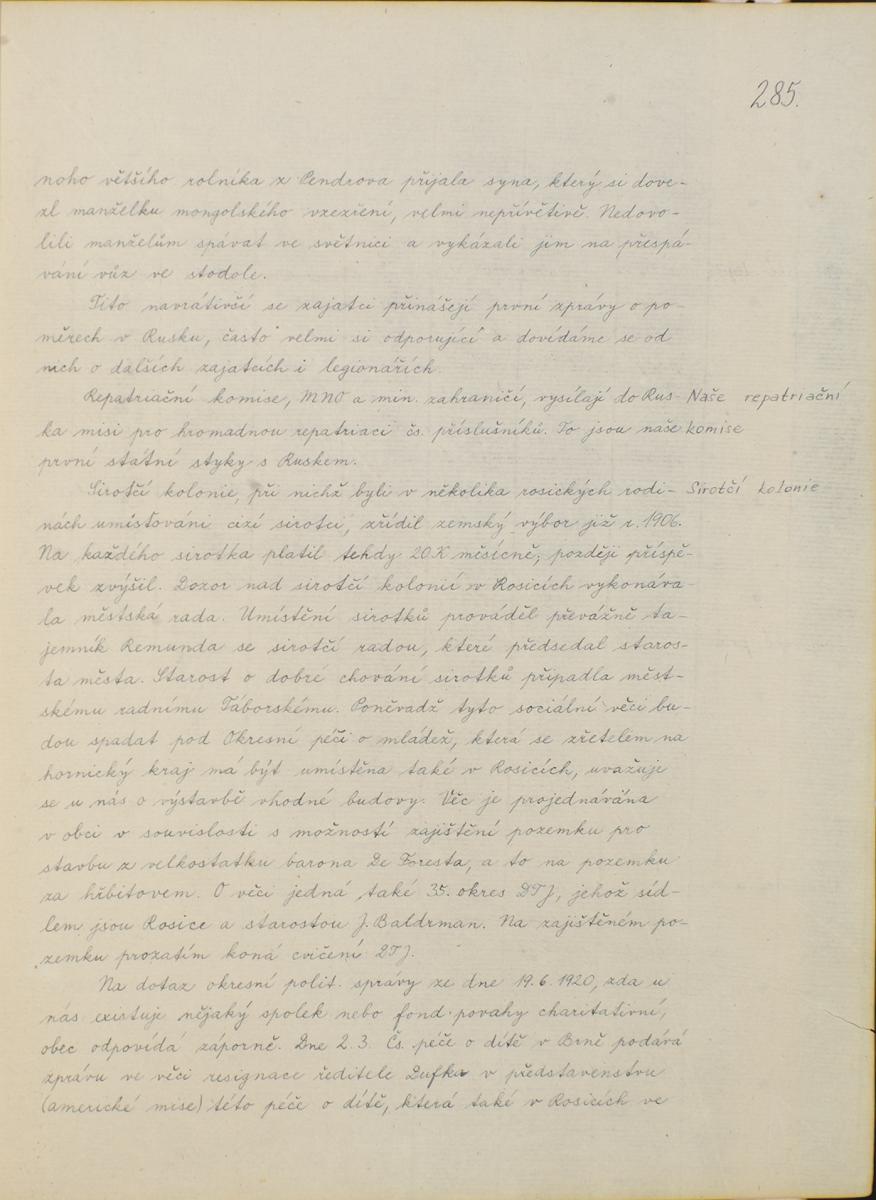 285.
noho většího rolníka z Cendrova přijala syna, který si dove-
zl manželku mongolského vzezření, velmi nepřívětivě. Nedovo-
lili manželům spávat ve světnici a vykázali jim na přespá-
vání vůz ve stodole.
Tito navrátivší se zajatci přinášejí první zprávy o po-
měrech v Rusku, často velmi si odporující a dovídáme se od
nich o dalších zajatcích i legionářích.
Repatriační komise, MNO a min. zahraničí, vysílají do Rus- Naše repatriační
ka misi pro hromadnou repatriaci čs. příslušníků. To jsou naše komise
první státní styky s Ruskem.
Sirotčí kolonie, při nichž byli v několika rosických rodi- Sirotčí kolonie
nách umísťováni cizí sirotci, zřídil zemský výbor již r. 1906.
Na každého sirotka platil tehdy 20 K měsícně, později příspě-
vek zvýšil. Dozor nad sirotčí kolonií v Rosicích vykonáva-
la městská rada. Umístění sirotků prováděl převážně ta-
jemník Remunda se sirotčí radou, které předsedal staros-
ta města. Starost o dobré chování sirotků připadla měst-
skému radnímu Táborskému. Poněvadž tyto sociální věci bu-
dou spadat pod Okresní péči o mládež, která se zřetelem na
hornický kraj má být umístěna také v Rosicích, uvažuje
se u nás o výstavbě vhodné budovy. Věc je projednávána
v obci v souvislosti s možností zajištění pozemku pro
stavbu z velkostatku barona De Foresta, a to na pozemku
za hřbitovem. O věci jedná také 35. okres DTJ, jehož síd-
lem jsou Rosice a starostou J. Baldrman. Na zajištěném po-
zemku prozatím koná cvičení DTJ.
Na dotaz okresní polit. správy ze dne 19. 6. 1920, zda u
nás existuje nějaký spolek nebo fond povahy charitativní,
obec odpovídá záporně. Dne 2. 3. Čs. péče o dítě v Brně podává
zprávu ve věci resignace ředitele Dufka v představenstvu
(americké mise) této péče o dítě, která také v Rosicích ve